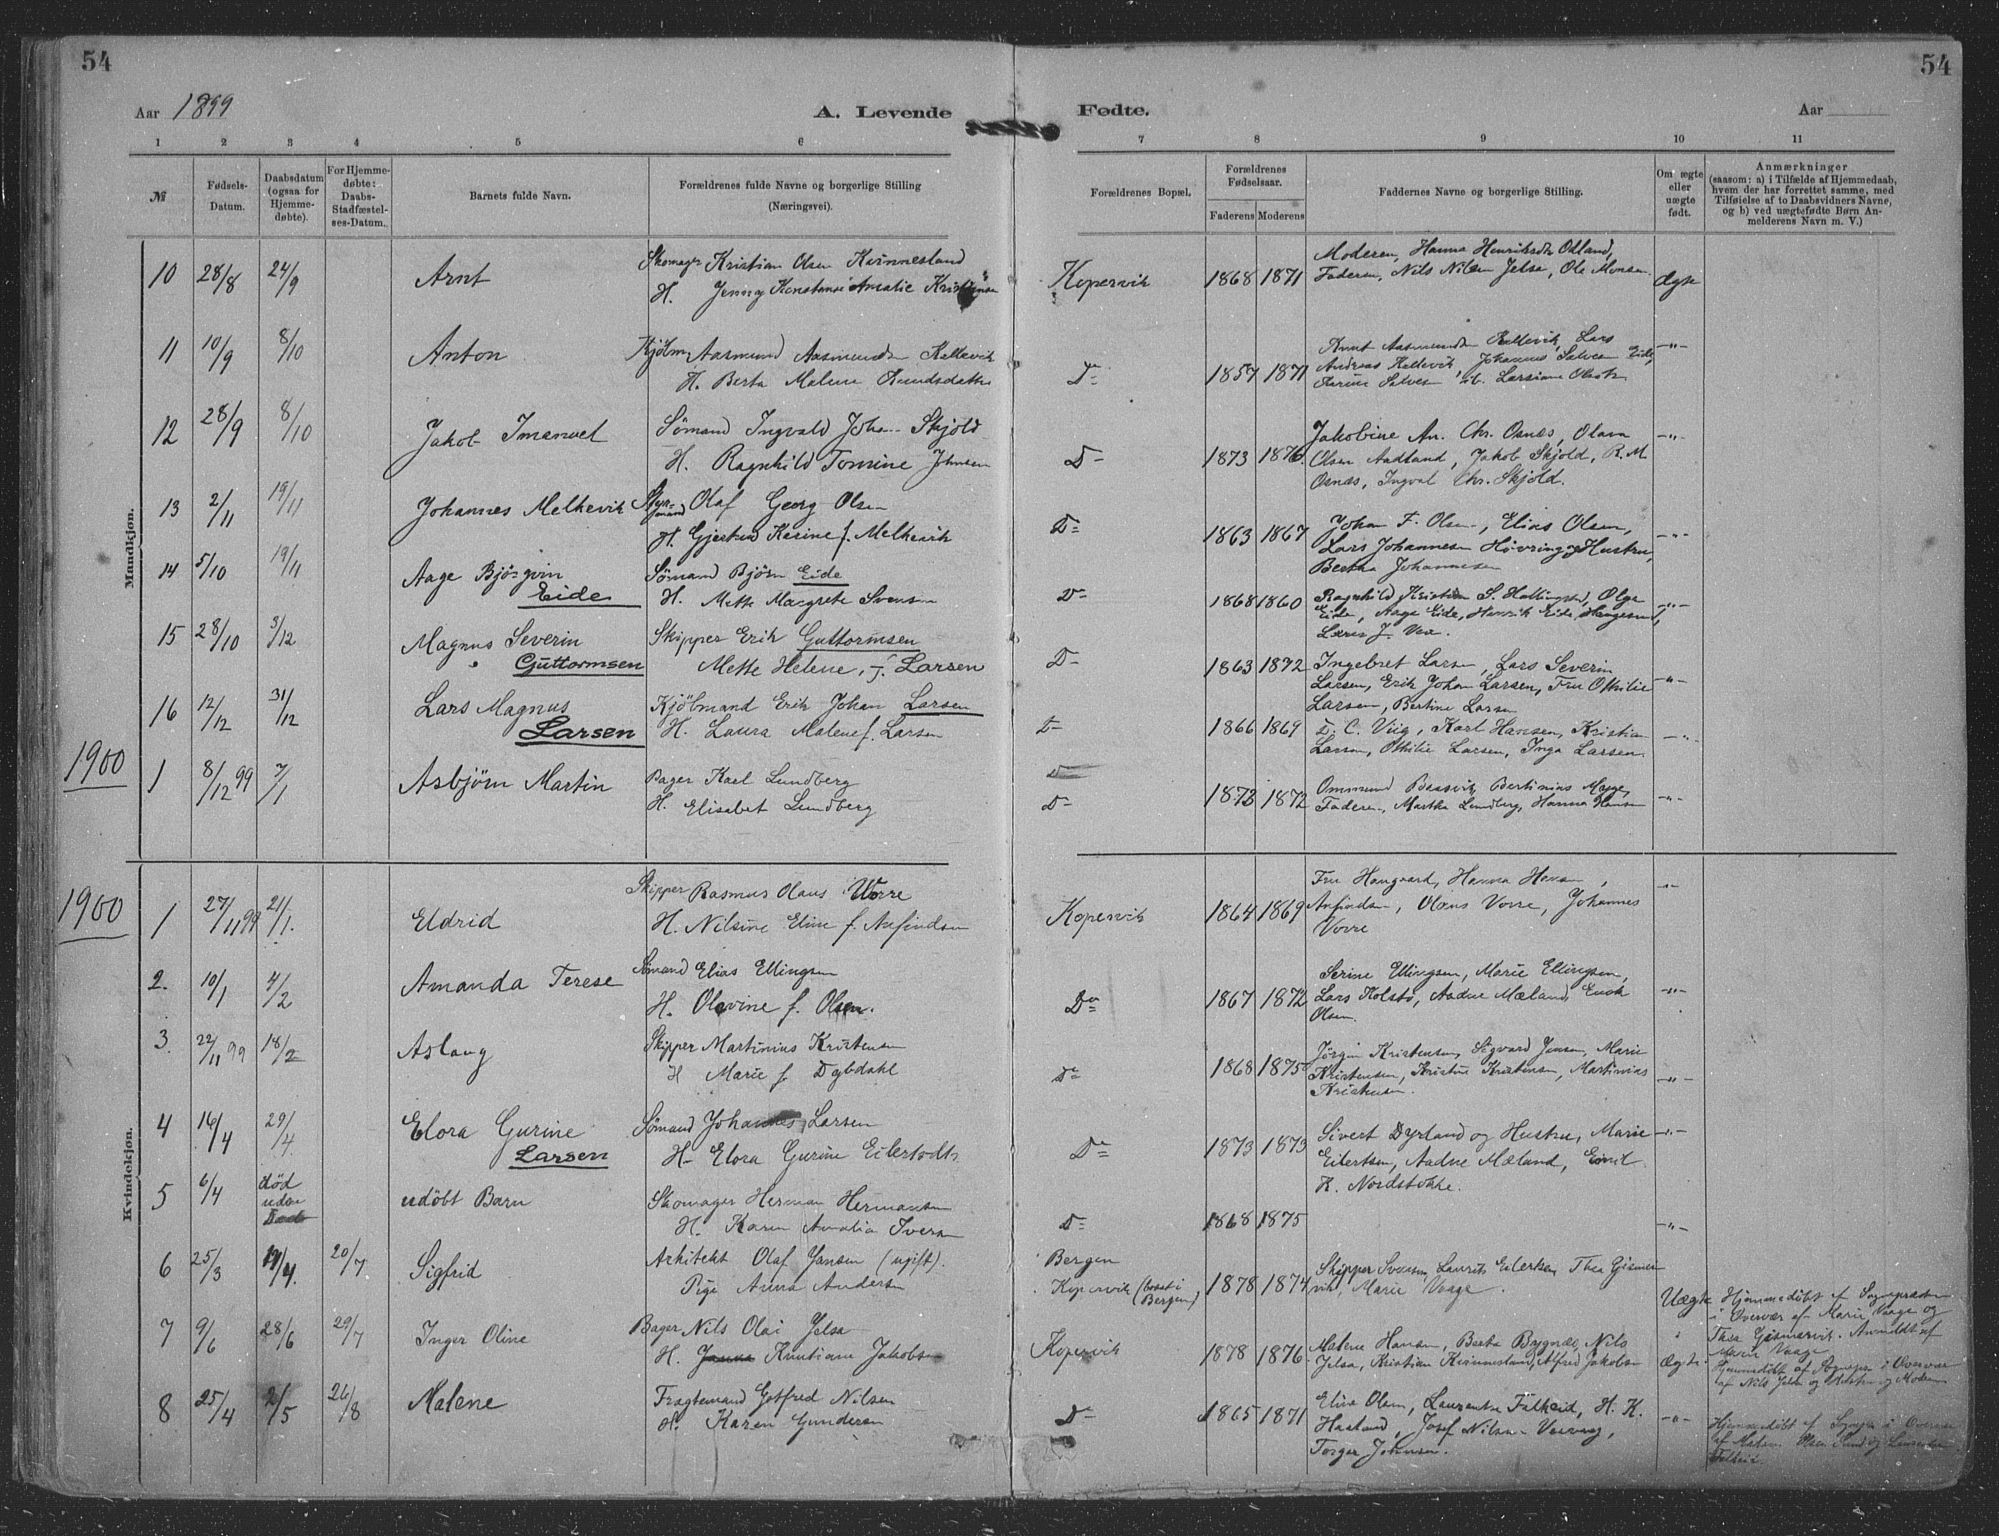 54
54
Aar 1899
A. Levende
Fødte.
Aar
1 2 3 4 5 6 7 8 9 10 11
№
Fødsels-
Datum.
Daabsdatum
(ogsaa for
Hjemme-
døbte).
For Hjemme-
døbte:
Daabs-
Stadfæstel-
ses-Datum.
Barnets fulde Navn.
Forældrenes fulde Navne og borgerlige Stilling
(Næringsvei).
Forældrenes Bopæl.
Forældrenes
Fødselsaar.
Faderens Moderens
Faddernes Navne og borgerlige Stilling.
Om ægte
eller
uægte
født.
Anmærkninger
(saasom: a) i Tilfælde af Hjemmedaab,
hvem der har forrettet samme, med
Tilføielse af to Daabsvidners Navne,
og b) ved uægtefødte Børn An-
melderens Navn m. V.)
Mandkjøn.
10 28/8 24/9 Arnt
Skomager Kristian Olsen Kvinnesland
H. Jenny Konstanse Amalie
Kopervik 1868 1871
Moderen, Hanna Henriksdtr Økland,
Faderen, Nils Nilsen Jelsa, Ole Monsen
Ægte
11 10/9 8/10 Anton
Kjølm Aasmund Aasmundsen Kallevik
H. Berta Malene Knudsdatter
Do 1857 1871
Knut Aasmundsen Kallevik, Lars
Andreas Kallevik, Johannes Salvesen Eide,
Salvesen Larsine
-"-
12 28/9 8/10 Jakob Imanuel
Sømand Ingvald Johan Skjold
H. Ragnhild Tomine Johnsen
D- 1873 1876
Jakobine An. Chr. Osnæs, Olava
Olsen Aadland, Jakob Skjold, R. M.
Osnæs, Ingval Chr. Skjold.
-"-
13 2/11 19/11 Johannes Melkevik
Styrmand Olaf Georg Olsen
H. Gjertrud Kerine f. Melkevik
D- 1863 1867
Johan F. Olsen, Elias Olsen,
Lars Johannesen Høvring og Hustru,
Bertha Johannesen
-"-
14 5/10 19/11 Aage Bjørgvin
Eide
Sømand Bjørn Eide
H. Mette Margrete Svensen
D- 1868 1860
Ragnhild Kristian S. Olga
Eide, Aage Eide, Henrik Eide,
Lars J. Vea.
-"-
15 28/10 3/12 Magnus Severin
Guttormsen
Skipper Erik Guttormsen
Mette Helene, f. Larsen
D- 1863 1872
Ingebret Larsen, Lars Severin
Larsen, Erik Johan Larsen, Fru Othilie
Larsen, Bertine Larsen
-"-
16 12/12 31/12 Lars Magnus
Larsen
Kjøbmand Erik Johan Larsen
H. Laura Malene f. Larsen
D- 1866 1869
C. Viig, Karl Hansen, Kristian
Larsen, Othilie Larsen, Inga Larsen.
-"-
1900
1 8/12 99 7/1 Asbjørn Martin
Bager Karl Lundberg
H. Elisabet Lundberg
D- 1873 1872
Ommund Bertinius
Faderen, Martha Lundberg, Hanna Hansen
-"-
Kvindekjøn.
1900
1 27/11 99 21/1. Eldrid
Skipper Rasmus Olaus Vorre
H. Nilsine Eline f. Arfindsen
Kopervik 1864 1869
Fru Haugvard, Hanna
Arfindsen, Olaus Vorre, Johannes
Vorre
-"-
2. 10/1 4/2 Amanda Terese
Sømand Elias Ellingsen
H. Olevine f. Olsen.
Do 1867 1872
Serine Ellingsen, Marie Ellingsen,
Lars Kolstø, Aadne Mæland, Enok
Olsen.
-"-
3. 22/11 99 18/2 Aslaug
Skipper Martinius Kristensen
H Marie f Dybdahl
Do 1868 1875
Jørgin Kristensen, Sigvard Jensen, Marie
Kristensen, Kristine Kristensen, Martinius
Kristensen
-"-
4 16/4 29/4. Elora Gurine
Larsen
Sømand Johannes Larsen
H. Elora Gurine
Do 1873 1873
Sivert Dyrland og Hustru, Marie
Eilertsen, Aadne Mæland, Emil
K. Nordstokke.
-"-
5 6/4 død
uden
Daab
udøbt Barn
Skomager Herman Hermansen
H. Karen Amalia Iversen
D- 1868 1875
-"-
6 25/3 14/4. 20/7 Sigfrid
Arkitekt Olaf Jansen (ugift).
Pige Anna Andersen
Bergen
Kopervik (bosat i
Bergen)
1878 1874
Skipper Svensen, Laurits Eilertsen, Thea Gismer
vik, Marie Vaage.
Uægte
Hjemmedøbt af Sognepræsten
i Overvær af Marie Vaage og
Thea Gismarvik. Anmeldt af
Marie Vaage
7 9/6 28/6 29/7 Inger Oline
Bager Nils Olai Jelsa
H. Knutiane Jakobsen
Kopervik 1878 1876
Malene Hansen, Berta Bygnæs, Nils
Jelsa, Kristian Kvinnesland, Alfred Jakobsen
Ægte.
Hjemmedøbt af Sognepr i Overvær
af Nils Jelsa og og Moderen
8 25/4 2/5 26/8 Malene
Fragtemand Gotfred Nilsen
H. Karen Gundersen
Do 1865 1871
Elisa Olsen, Laurentse Falkeid, H. K.
Haaland, Josef Nilsen
Torger Johnsen.
-"-
Hjemmedøbt af Sognepr i Overvær
af Malene Olsen Sund og
Falkeid